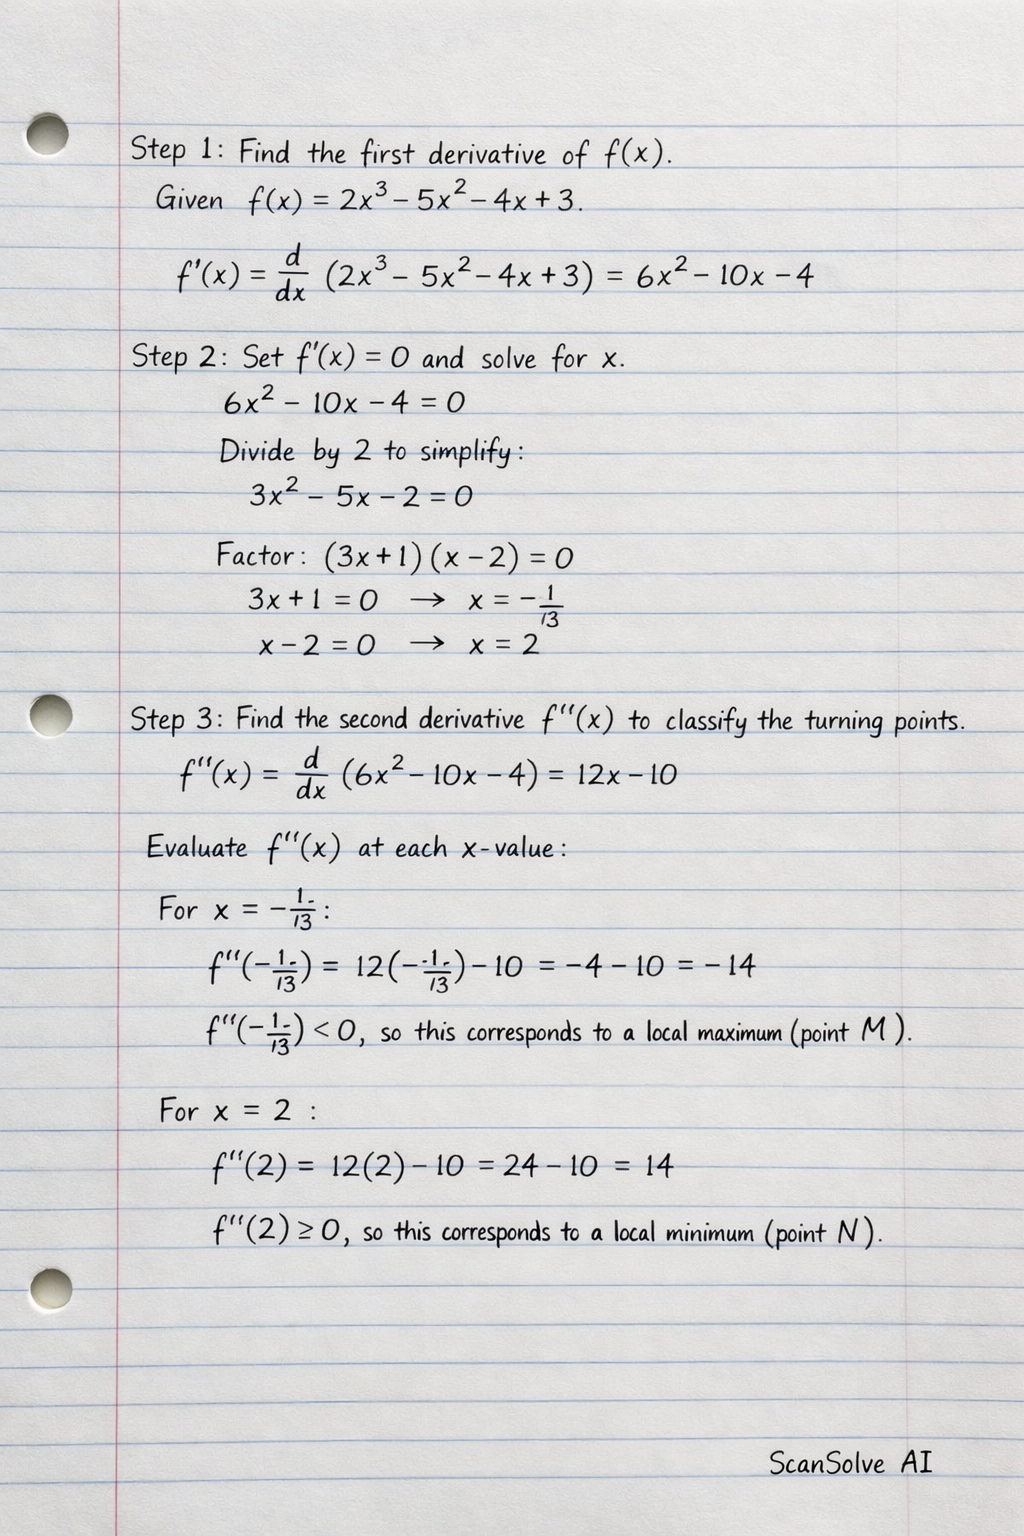 Step 1: Find the first derivative of f(x).
Given f(x) = 2x³ – 5x² – 4x + 3.
f'(x) = d/dx (2x³ – 5x² – 4x + 3) = 6x² – 10x – 4
Step 2: Set f'(x) = 0 and solve for x.
6x² – 10x – 4 = 0
Divide by 2 to simplify:
3x² – 5x – 2 = 0
Factor: (3x + 1)(x – 2) = 0
3x + 1 = 0 → x = –1/13
x – 2 = 0 → x = 2
Step 3: Find the second derivative f''(x) to classify the turning points.
f''(x) = d/dx (6x² – 10x – 4) = 12x – 10
Evaluate f''(x) at each x-value:
For x = –1/13:
f''(–1/13) = 12(–1/13) – 10 = –4 – 10 = –14
f''(–1/13) < 0, so this corresponds to a local maximum (point M).
For x = 2 :
f''(2) = 12(2) – 10 = 24 – 10 = 14
f''(2) ≥ 0, so this corresponds to a local minimum (point N).
ScanSolve AI